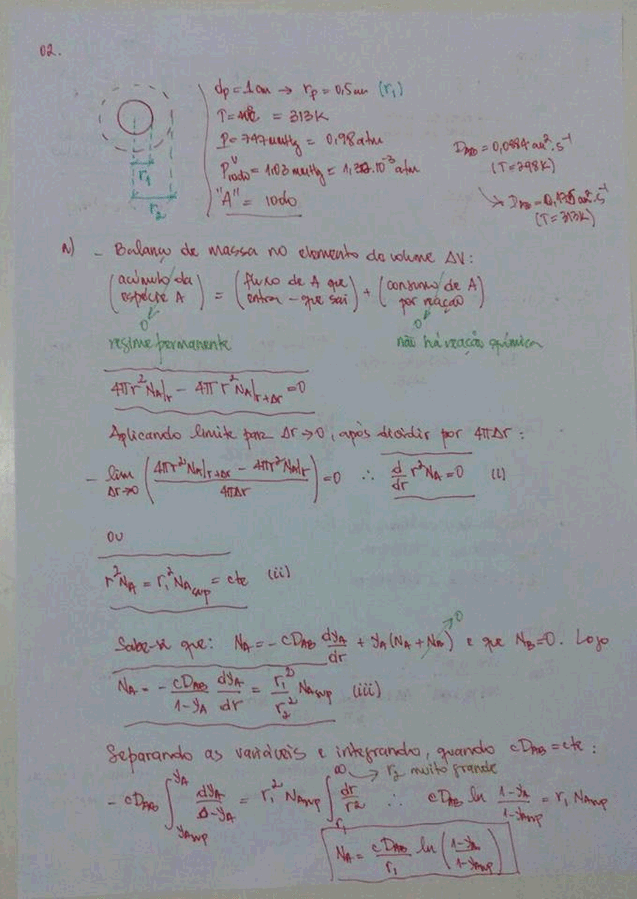 02.
dp = 1 cm → rp = 0,5 cm (r₁)
T = 40°C = 313K
P = 747 mmHg = 0,98 atm
P iodo = 1,03 mmHg = 10⁻³ atm
"A" = iodo
D_AB = 0,0884 cm².s⁻¹
(T = 298K)
↘ D_AB = cm².s⁻¹
(T = 313K)
r₁
r₂
a) - Balanço de massa no elemento de volume ΔV:
(acúmulo da espécie A) = (fluxo de A que entra - que sai) + (consumo de A por reação)
0 0
regime permanente não há reação química
4πr²N_A|r - 4πr²N_A|r+Δr = 0
Aplicando limite para Δr→0, após dividir por 4πΔr:
- lim Δr→0 (4πr²N_A|r+Δr - 4πr²N_A|r / 4πΔr) = 0 ∴ d/dr r²N_A = 0 (i)
ou
r²N_A = r₁²N_Asup = cte (ii)
Sabe-se que: N_A = -cD_AB dy_A/dr + y_A(N_A + N_B) e que N_B = 0. Logo
0
N_A = - cD_AB/1-y_A dy_A/dr = r₁²/r₂² N_Asup (iii)
Separando as variáveis e integrando, quando cD_AB = cte:
∞ → r₂ muito grande
- cD_AB ∫ y_Asup y_A dy_A/1-y_A = r₁² N_Asup ∫ r₁ ∞ dr/r² ∴ cD_AB ln 1-y_A/1-y_Asup = r₁ N_Asup
N_A = cD_AB/r₁ ln (1-y_A/1-y_Asup)